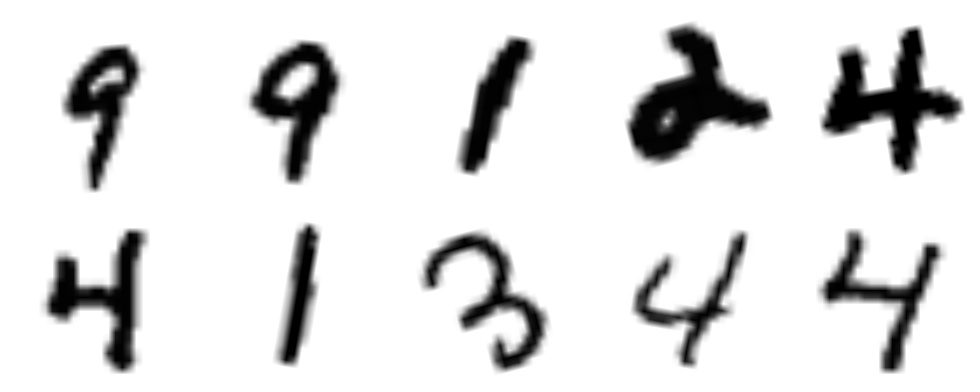 9 9 1 2 4
4 1 3 4 4